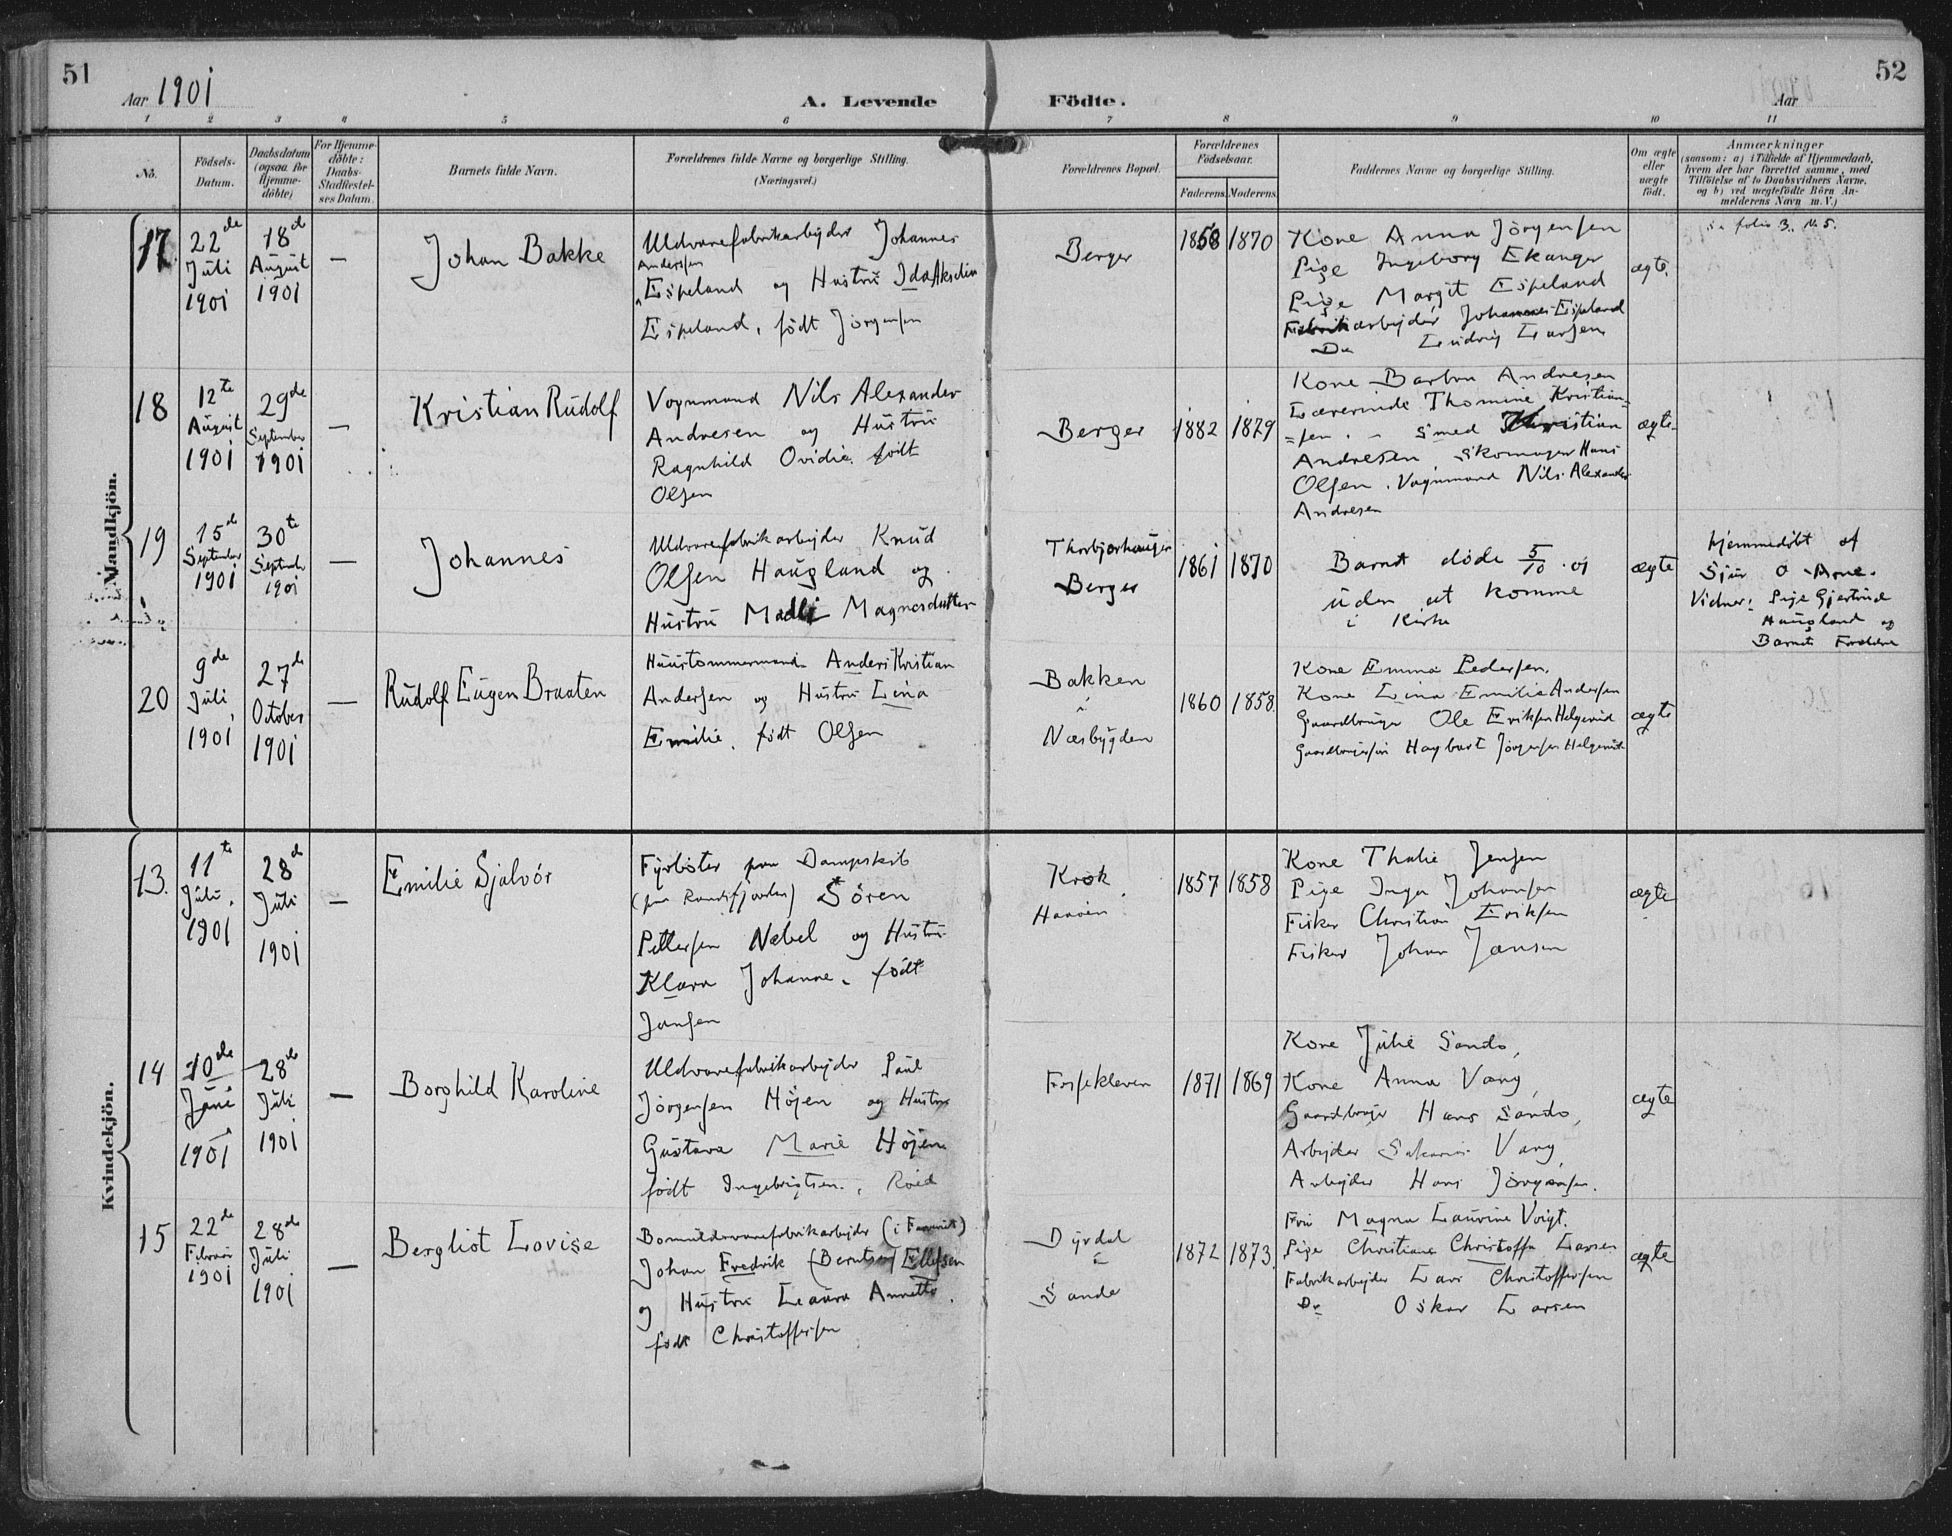 51
Aar 1901
A. Levende
Födte.
Aar
52
1 2 3 4 5 6 7 8 9 10 11
No.
Födsels-
Datum.
Daabsdatum
(ogsaa for
Hjemme-
döbte)
For Hjemme-
döbte:
Daabs-
Stadfæstel-
ses Datum.
Barnets fulde Navn.
Forældrenes fulde Navne og borgerlige Stilling.
(Næringsvei.)
Forældrenes Bopæl.
Forældrenes
Födselsaar.
Faderens. Moderens.
Faddernes Navne og borgerlige Stilling.
Om ægte
eller
uægte
födt.
Anmærkninger
(saasom: a) i Tilfælde af Hjemmedaab,
hvem der har forrettet samme, med
Tilföielse af to Daabsvidners Navne,
og b) ved uægtefödte Börn An-
melderens Navn m. V.)
Mandkjön.
17.
22de
Juli
1901
18d
August
1901
—
Johan Bakke
Uldvarefabrikarbejder Johannes
Andersen
Espeland og Hustru Ida Akseline
Espeland, födt Jörgensen
Berger
1858
1870
Kone Anna Jörgensen
Pige Ingeborg Ekanger
Pige Margit Espeland
Fabrikarbejder Johannes Espeland
Do Ludvig Larsen
ægte.
folio 3. N. 5.
18
12te
August
1901
29de
September
1901
—
Kristian Rudolf
Vognmand Nils Alexander
Andresen og Hustru
Ragnhild Ovidia. födt
Olsen
Berger
1882
1879
Kone Barbra Andresen
Lærerinde Thomine Kristian=
=sen. - Smed Christian
Andresen Skomager Hans
Olsen. Vognmand Nils Alexander
Andresen
ægte
19
15d
September
1901
30te
September
1901
—
Johannes
Uldvarefabrikarbejder Knud
Olsen Haugland og
Hustru Madli Magnesdatter
Berger
1861
1870
Barnet döde 5/10 . og
uden at komme
i Kirke
ægte
Hjemmedöbt af
Sjur O. Arne.
Vidner: Pige Gjertrud
Haugland og
Barnets Forældre
20
9de
Juli
1901
27de
October
1901
—
Rudolf Eugen Braaten
Huustömmermand Anders Kristian
Andersen og Hustru Lina
Emilie. födt Olsen
Bakken
i
Næsbygden
1860
1858.
Kone Emma Pedersen.
Kone Lina Emilie Andersen
Gaardbruger Ole Eriksen Helgerud
Gaardbrugersön Haybart Jörgensen Helgerud
ægte
Kvindekjön.
13.
11te
Juli.
1901
28d
Juli
1901
—
Emilie Sjalvör
Fyrböter paa Dampskib
(paa Randsfjorden) Sören
Pettersen Nebel og Hustru
Klara Johanne. födt
Jansen
Krok
Havöen
1857
1858
Kone Thalie Jensen
Pige Inga Johansen
Fisker Christian Eriksen
Fisker Johan Jansen
ægte
14
10de
Juni
1901
28de
Juli
1901
—
Borghild Karoline
Uldvarefabrikarbejder Paul
Jörgensen Höjen og Hustru
Gustava Marie Höjen
födt Ingebrigtsen.
Fossekleven
1871
1869
Kone Julie Sando,
Kone Anna Vang
Gaardbruger Hans Sando,
Arbejder Sakarias Vang
Arbejder Hans Jörgensen.
ægte
15
22de
Februar
1901
28de
Juli
1901
—
Bergliot Lovise
Bomuldsvarefabrikarbejder
Johan Fredrik (Berntsen) Ellefsen
og Hustru Laura Annette.
födt Christoffersen
Dyrdal
i
Sande
1872
1873.
Fru Magna Laurine Voigt.
Pige Christiane Christoffa Larsen
Fabrikarbejder Lars Christoffersen
Do Oskar Larsen
ægte